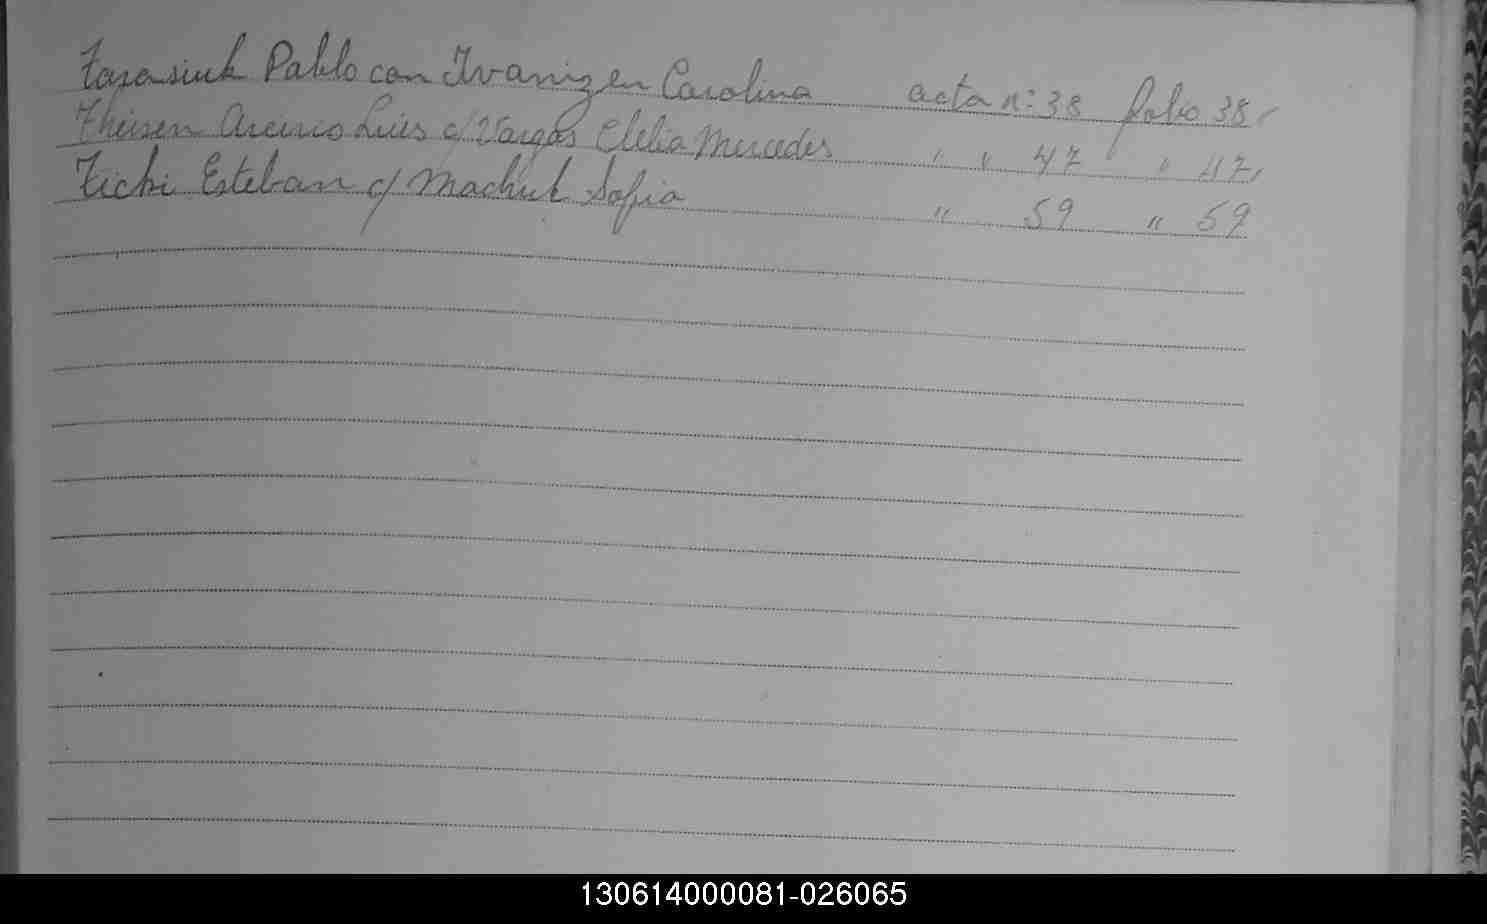 Tarasiuk Pablo con Ivanizen Carolina acta nº 38 folio 38
Theisen Arcirio Luis c/ Vargas Clelia Mercedes " " 47 " " 47
Ticki Esteban c/ Machuk Sofia " 59 " 59
130614000081-026065